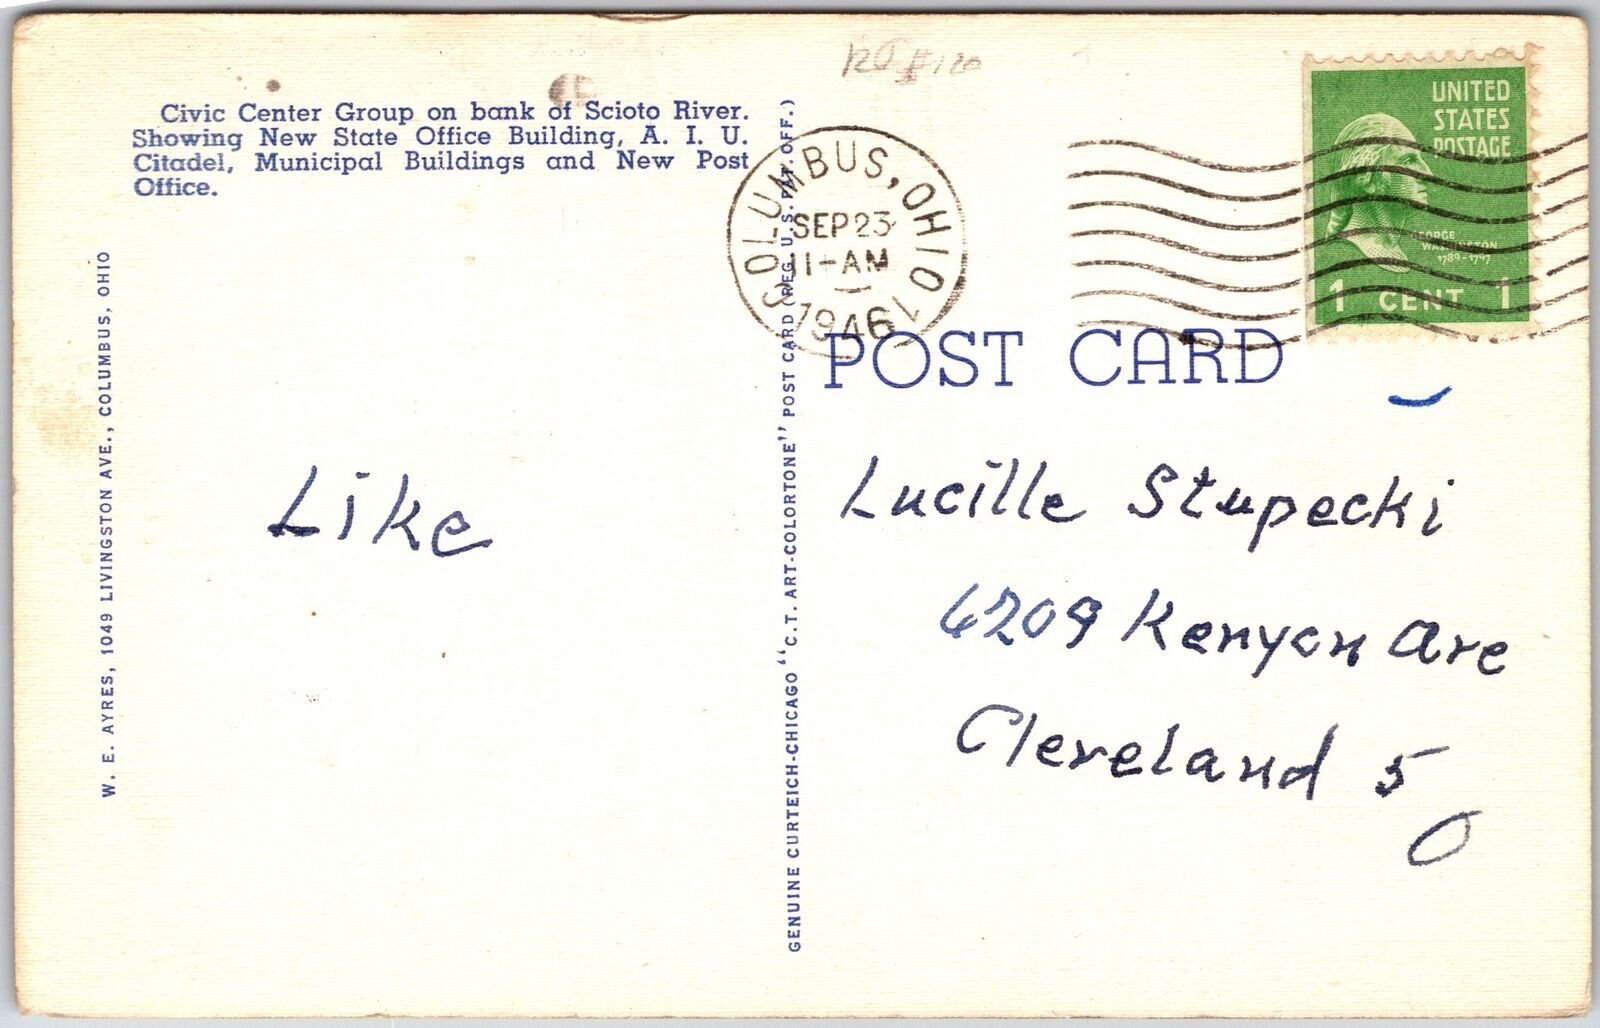 Civic Center Group on bank of Scioto River.
Showing New State Office Building, A. I. U.
Citadel, Municipal Buildings and New Post
Office.
W. E. AYRES, 1049 LIVINGSTON AVE., COLUMBUS, OHIO
Like
GENUINE CURTEICH-CHICAGO "C.T. ART-COLORTONE" POST CARD (REG. U.S. PAT. OFF.)
#120
COLUMBUS, OHIO 1
SEP 23
11-AM
1946
UNITED
STATES
POSTAGE
GEORGE
WASHINGTON
1789-1797
1 CENT 1
POST CARD
Lucille Stupecki
6209 Kenyon Ave
Cleveland 5
O